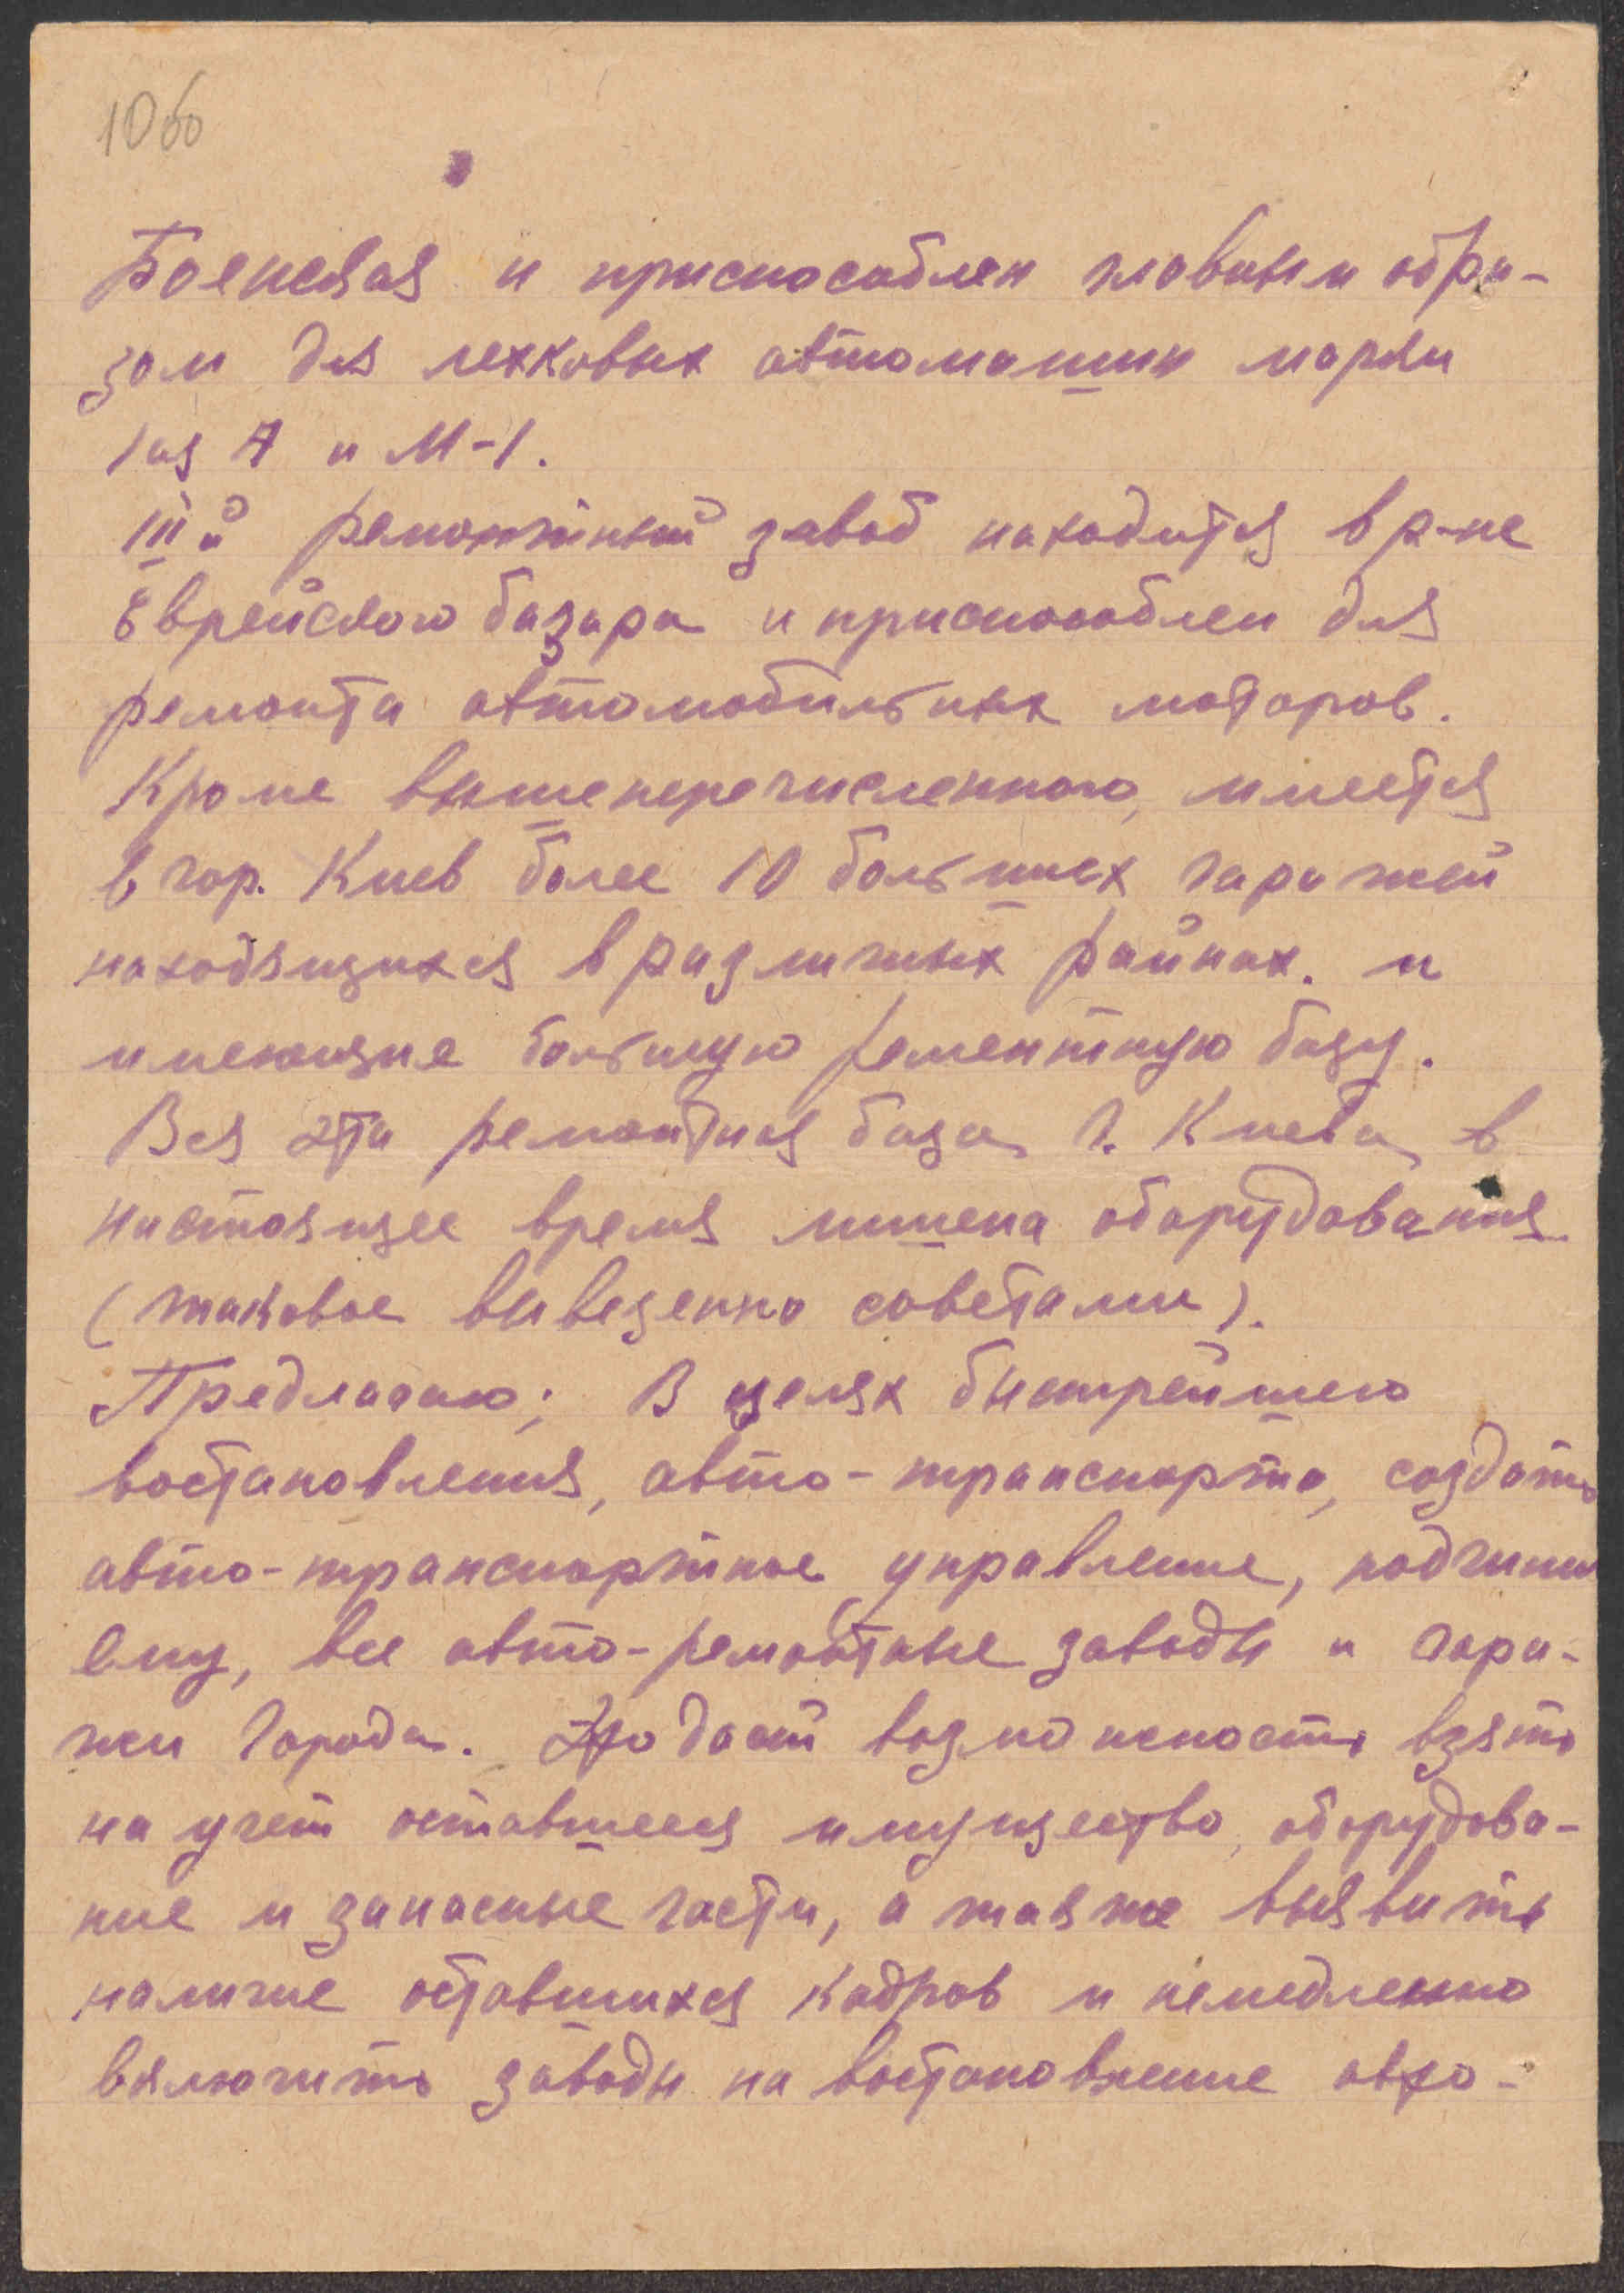 106
Боенская и приспособлен главным обра-
зом для легковых автомашин марки
Газ А и М-1.
IIIй ремонтный завод находится в р-не
Еврейского базара и приспособлен для
ремонта автомобильных моторов.
Кроме вышеперечисленного, имеется
в гор. Киев более 10 больших гаражей
находящихся в различных районах. и
имеющие большую ремонтную базу.
Вся эта ремонтная база г. Киева в
настоящее время лишена оборудования
(таковое вывезенно советами).
Предлагаю; В целях быстрейшего
востановления, авто-транспорта, создать
авто-транспортное управление, подчинив
ему, все авто-ремонтные заводы и гара-
жи города. Это даст возможность взять
на учет оставшееся имущество, оборудова-
ние и запасные части, а также выявить
наличие оставшихся кадров и немедленно
включить заводы на востановление авто-